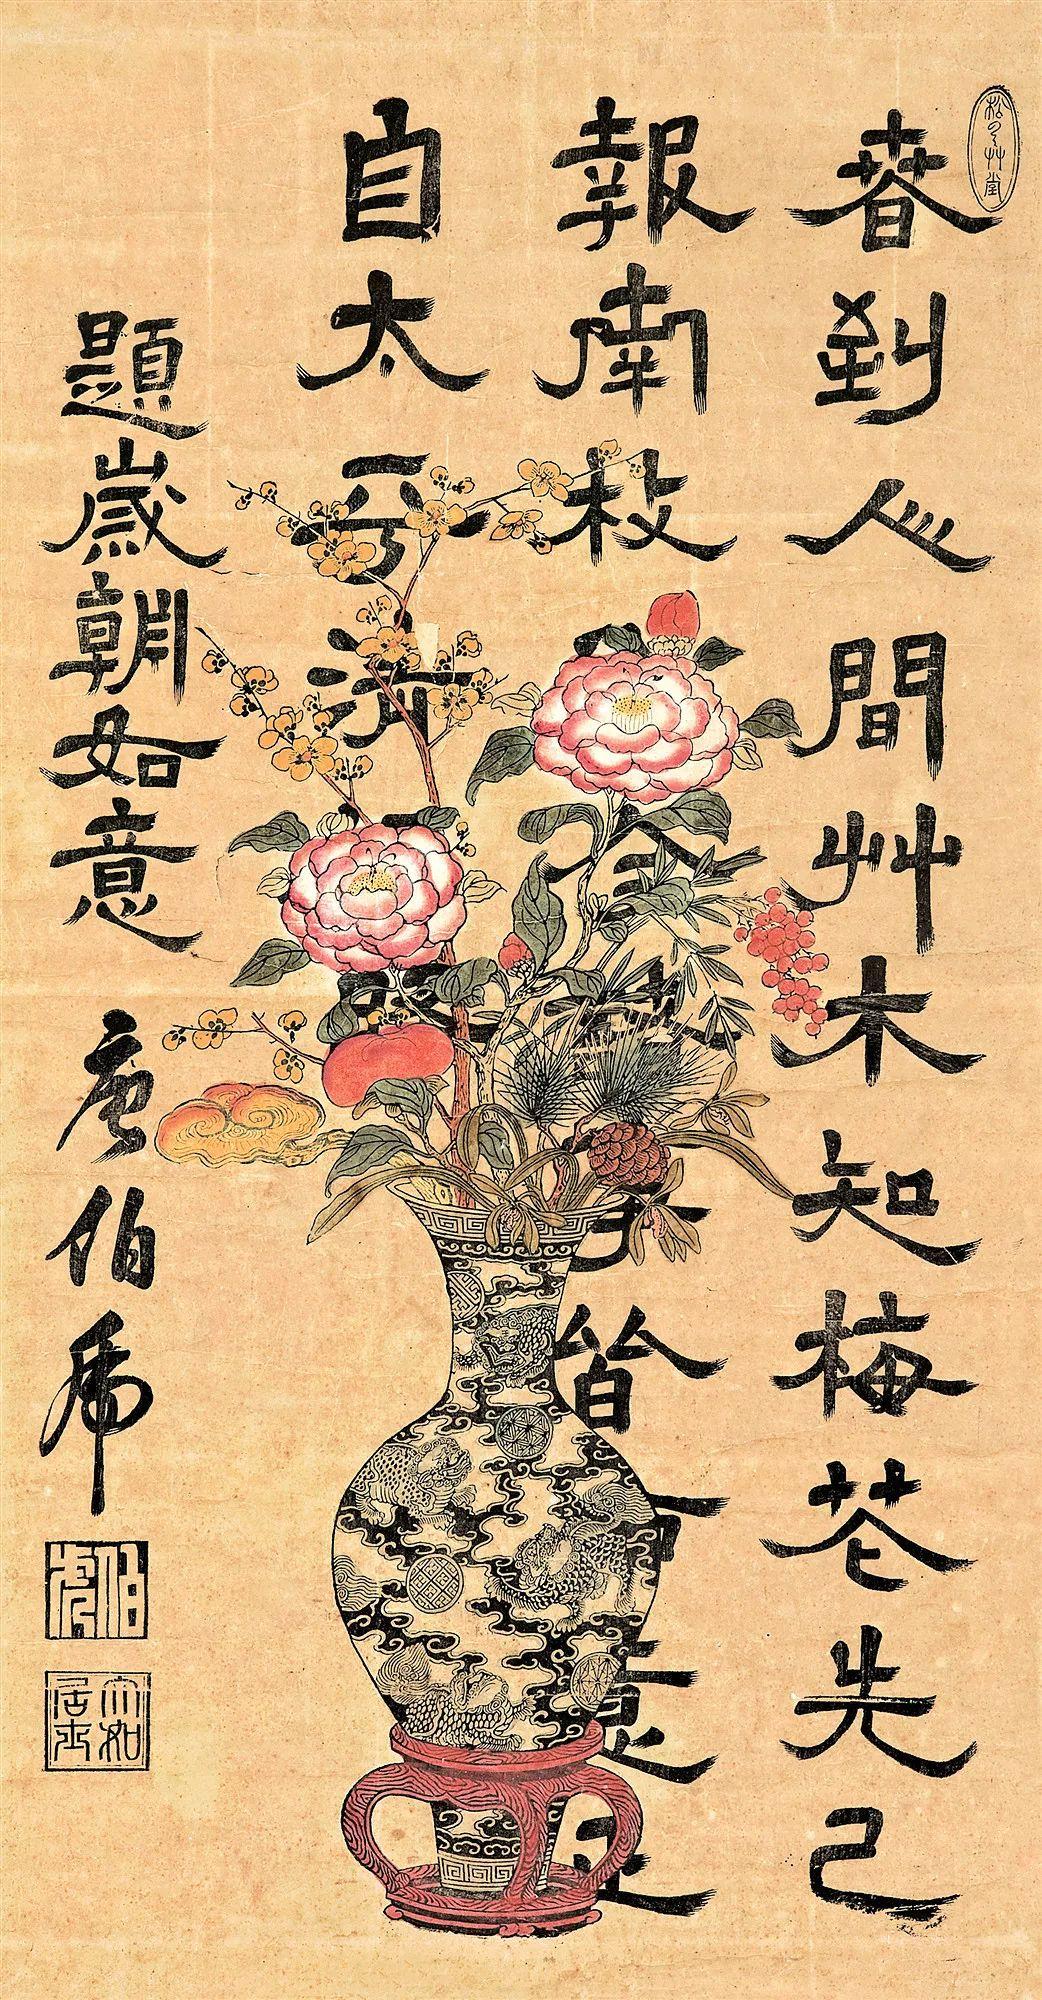 春到人間艸木知梅花先已
報南枝今事皆意
自太平清
題歲朝如意
唐伯虎
伯虎
六如居士